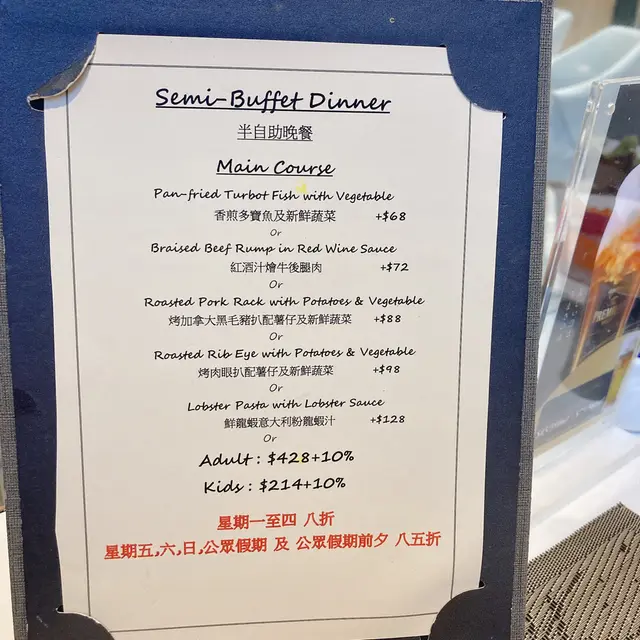 Semi-Buffet Dinner
半自助晚餐
Main Course
Pan-fried Turbot Fish with Vegetable
香煎多寶魚及新鮮蔬菜 +$68
Or
Braised Beef Rump in Red Wine Sauce
紅酒汁燴牛後腿肉 +$72
Or
Roasted Pork Rack with Potatoes & Vegetable
烤加拿大黑毛豬扒配薯仔及新鮮蔬菜 +$88
Or
Roasted Rib Eye with Potatoes & Vegetable
烤肉眼扒配薯仔及新鮮蔬菜 +$98
Or
Lobster Pasta with Lobster Sauce
鮮龍蝦意大利粉龍蝦汁 +$128
Or
Adult : $428+10%
Kids : $214+10%
星期一至四 八折
星期五,六,日,公眾假期 及 公眾假期前夕 八五折